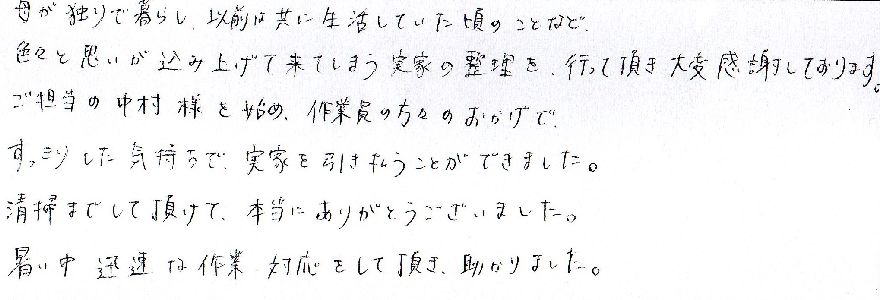 母が独りで暮らし、以前は共に生活していた頃のことなど、
色々と思いが込み上げて来てしまう実家の整理を、行って頂き大変感謝しております。
ご担当の中村様を始め、作業員の方々のおかげで、
すっきりした気持ちで、実家を引き払うことができました。
清掃までして頂けて、本当にありがとうございました。
暑い中 迅速な作業 対応をして頂き、助かりました。